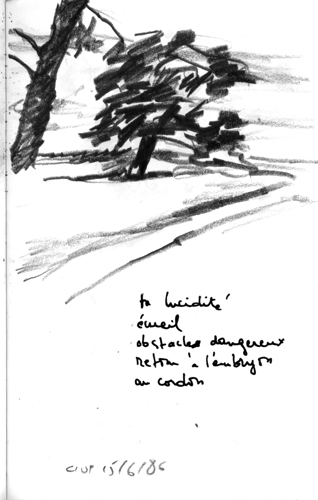 ta lucidité
éveil
obstacles dangereux
retour à l'embryon
au cordon
CIUP 15/6/86